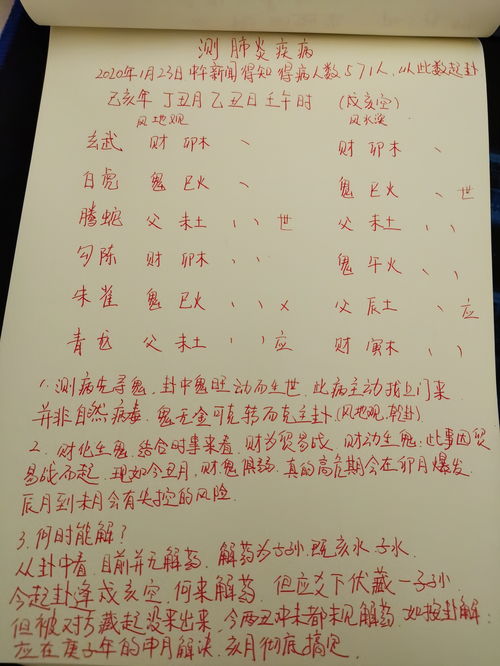 测肺炎疾病
2020年1月23日中午新闻得知 得病人数571人,以此数起卦
己亥年 丁丑月 乙丑日 壬午时 (戌亥空)
风地观 风水涣
玄武 财 卯木 、 财 卯木 、
白虎 鬼 巳火 、 鬼 巳火 、世
腾蛇 父 未土 、、世 父 未土 、、
勾陈 财 卯木 、、 鬼 午火 、、
朱雀 鬼 巳火 、、 x 父 辰土 、 应
青龙 父 未土 、、应 财 寅木 、、
1. 测病先寻鬼,卦中鬼旺动而生世,此病主动找上门来
并非自然病毒,鬼无金可克转而克主卦(风地观,乾卦)
2. 财化生鬼,结合时事来看,财为贸易战,财动生鬼:此事因贸
易战而起,现如今丑月,财鬼俱弱,真的高危期会在卯月爆发,
辰月到未月会有失控的风险
3. 何时能解?
从卦中看,目前并无解药,解药为子孙,既亥水、子水
今起卦逢戌亥空,何来解药,但应爻下伏藏一子孙
但被对方藏起没来出来,今两丑冲未都未见解药,如按卦解:
应在庚子年的申月解决,亥月彻底搞定